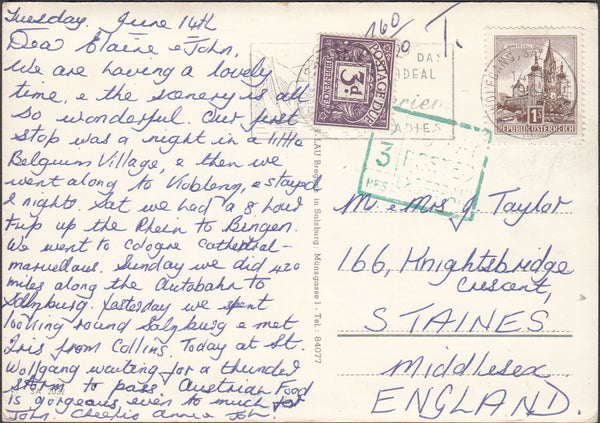 Tuesday, June 14th
Dear Elaine & John,
We are having a lovely
time, & the scenery is all
so wonderful. Our first
stop was a night in a little
Belguim Village, & then we
went along to Koblenz, & stayed
2 nights. Sat we had a 8 hour
trip up the Rhein to Bingen.
We went to Cologne Cathedral -
marvellous. Sunday we did 420
miles along the Autobahn to
Salzburg. Yesterday we spent
looking round Salzburg & met
Iris from Collins. Today at St.
Wolfgang waiting for a thunder
storm to pass Austrian Food
is gorgeous even to much for
John. Cheerio Annie Joh.
SA 2032
LAU Bregenz in Salzburg: Münzgasse 1 - Tel.: 84077
160
T.
POSTAGE DUE
3d.
DAS
IDEAL
3
POSTED
1S
REPUBLIK ÖSTERREICH
Mr. & Mrs J. Taylor
166, Knightsbridge
Crescent,
STAINES
Middlesex
ENGLAND.